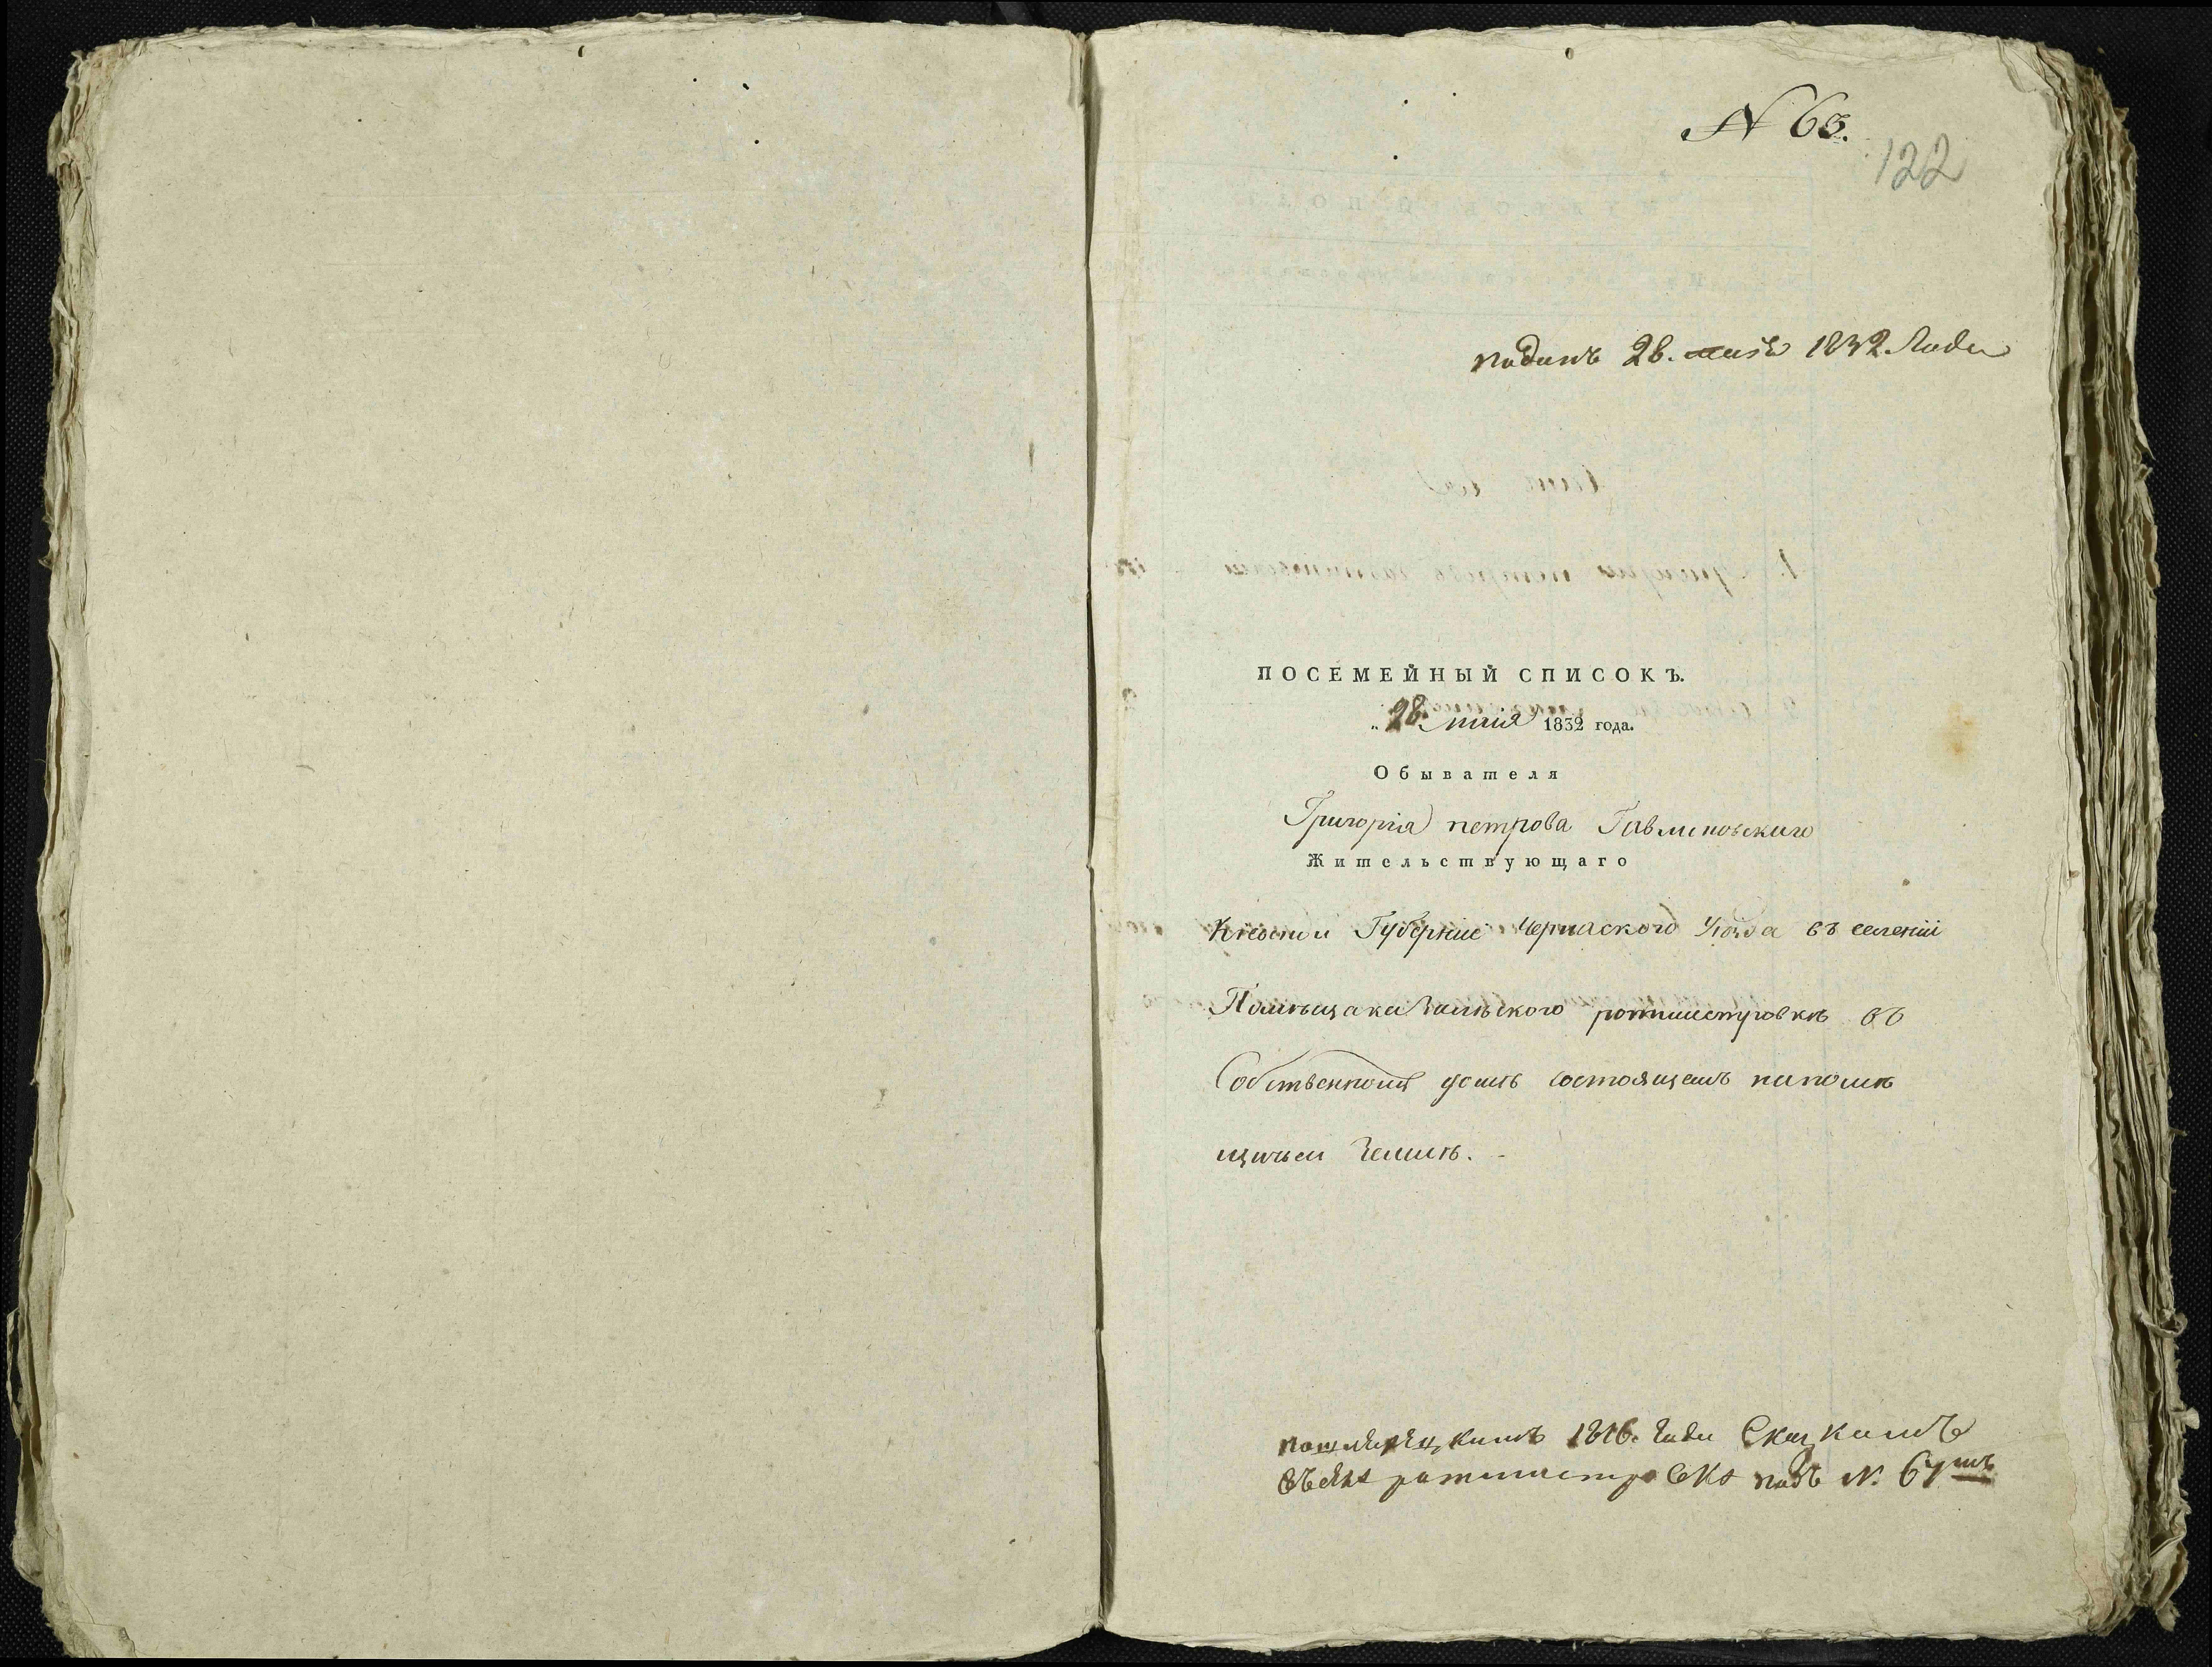 N 63.
122
поданъ 28. маія 1832 Года
ПОСЕМЕЙНЫЙ СПИСОКЪ.
„ 28 маія 1832 года.
Обывателя
Григорія петрова
Жительствующаго
Киевской Губерніи Черкаского Уезда въ селеніи
Помѣщака ротмистровкѣ въ
Собственномъ домѣ состоящемъ напомѣ
щичьей Землѣ. -
1816. года Сказкамъ
ротмистровка подъ N. 67мъ